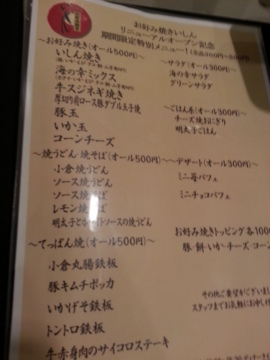 お好み焼きいしん
リニューアルオープン記念
期間限定特別メニュー！
～お好み焼き(オール500円)～
いしん焼き
海の幸ミックス
牛スジネギ焼き
厚切り肩ロース豚ダブル玉子焼
豚玉
いか玉
コーンチーズ
～焼うどん 焼そば(オール500円)～
小倉焼うどん
ソース焼うどん
ソース焼そば
レモン焼そば
明太子とソースの焼うどん
～てっぱん焼(オール500円)～
小倉丸腸鉄板
豚キムチポッカ
いかげそ鉄板
トントロ鉄板
牛赤身肉のサイコロステーキ
～サラダ(オール300円)～
海の幸サラダ
グリーンサラダ
～ごはん(オール300円)～
チーズ焼おにぎり
明太子ごはん
～デザート(オール300円)～
ミニ苺パフェ
ミニチョコパフェ
お好み焼きトッピング各100
豚・餅・いか・チーズ・コーン
その他ご要望がございまし
スタッフまでお気軽にお申し付